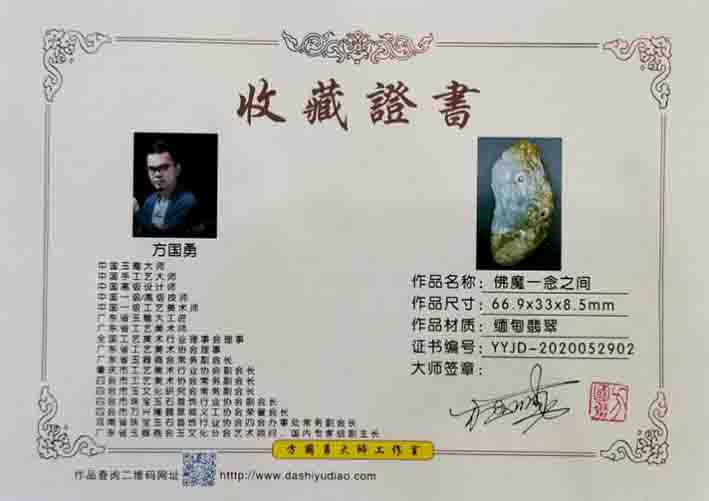 收藏證書
方国勇
中国玉雕大师
中国手工艺大师
中国高级设计师
中国一级/高级技师
中国一级工艺美术师
广东省玉雕大工匠
广东省工艺美术师
全国工艺美术行业理事会理事
广东省工艺美术协会理事
广东省玉器商会常务副会长
肇庆市工艺美术行业协会副会长
四会市工艺美术协会常务副会长
四会市玉文化研究会常务副会长
四会市珠宝玉石首饰行业协会副会长
四会市万兴隆翡翠城义工协会荣誉会长
河南省珠宝玉石首饰行业协会四会办事处常务副会长
广东省玉器商会玉文化分会艺术顾问、国内专家组副主长
作品名称：佛魔一念之间
作品尺寸：66.9x33x8.5mm
作品材质：缅甸翡翠
证书编号：YYJD-2020052902
大师签章：
方国勇大师工作室
作品查询二维码网址
http://www.dashiyudiao.com